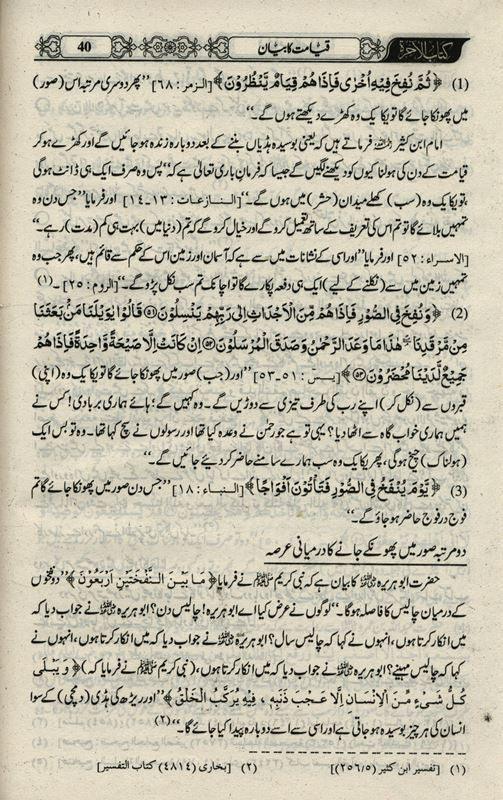 کتاب الآخرۃ
قیامت کا بیان
40
(1) ﴿ ثُمَّ نُفِخَ فِيهِ أُخْرٰى فَإِذَا هُمْ قِيَامٌ يَنْظُرُوْنَ ﴾ [الزمر : ٦٨] ’’پھر دوسری مرتبہ اس (صور)
میں پھونکا جائے گا تو یکا یک وہ کھڑے دیکھتے ہوں گے۔‘‘
امام ابن کثیر رحمہ اللہ فرماتے ہیں کہ یعنی بوسیدہ ہڈیاں بننے کے بعد دوبارہ زندہ ہو جائیں گے اور کھڑے ہو کر
قیامت کے دن کی ہولناکیوں کو دیکھنے لگیں گے جیسا کہ فرمان باری تعالیٰ ہے کہ ’’پس وہ صرف ایک ہی ڈانٹ ہو گی
، تو یکا یک وہ (سب) کھلے میدان (حشر) میں ہوں گے۔‘‘ [النازعات : ١٣-١٤] اور فرمایا ’’جس دن وہ
تمہیں بلائے گا تو تم اس کی تعریف کے ساتھ تعمیل کرو گے اور خیال کرو گے کہ تم (دنیا میں) بہت ہی کم (مدت) رہے۔‘‘
[الاسراء : ٥٢] اور فرمایا ’’اور اسی کے نشانات میں سے ہے کہ آسمان اور زمین اس کے حکم سے قائم ہیں، پھر جب وہ
تمہیں زمین میں سے (نکلنے کے لیے) ایک ہی دفعہ پکارے گا تو اچانک تم سب نکل پڑو گے۔‘‘ [الروم : ٢٥] ۔ (١)
(2) ﴿ وَنُفِخَ فِي الصُّوْرِ فَإِذَا هُمْ مِّنَ الْأَجْدَاثِ إِلٰى رَبِّهِمْ يَنْسِلُوْنَ ۝٥١ قَالُوْا يٰوَيْلَنَا مَنْۢ بَعَثَنَا
مِنْ مَّرْقَدِنَا ۘ هٰذَا مَا وَعَدَ الرَّحْمٰنُ وَصَدَقَ الْمُرْسَلُوْنَ ۝٥٢ إِنْ كَانَتْ إِلَّا صَيْحَةً وَّاحِدَةً فَإِذَا هُمْ
جَمِيْعٌ لَّدَيْنَا مُحْضَرُوْنَ ۝٥٣ ﴾ [یٰسٓ : ٥١-٥٣] ’’اور (جب) صور میں پھونکا جائے گا تو یکا یک وہ (اپنی)
قبروں سے (نکل کر) اپنے رب کی طرف تیزی سے دوڑیں گے۔ وہ کہیں گے: ہائے ہماری بربادی! کس نے
ہمیں ہماری خواب گاہ سے اٹھا دیا؟ یہی تو ہے جو رحمن نے وعدہ کیا تھا اور رسولوں نے سچ کہا تھا۔ وہ تو بس ایک
(ہولناک) چیخ ہو گی، پھر یکا یک وہ سب ہمارے سامنے حاضر کر دیئے جائیں گے۔‘‘
(3) ﴿ يَوْمَ يُنْفَخُ فِي الصُّوْرِ فَتَأْتُوْنَ أَفْوَاجًا ﴾ [النباء : ١٨] ’’جس دن صور میں پھونکا جائے گا تم
فوج در فوج حاضر ہو جاؤ گے۔‘‘
دو مرتبہ صور میں پھونکے جانے کا درمیانی عرصہ
حضرت ابو ہریرہ رضی اللہ عنہ کا بیان ہے کہ نبی کریم ﷺ نے فرمایا ﴿ مَا بَيْنَ النَّفْخَتَيْنِ أَرْبَعُوْنَ ﴾ ’’دو نفخوں
کے درمیان چالیس کا فاصلہ ہو گا۔‘‘ لوگوں نے عرض کیا اے ابو ہریرہ! چالیس دن؟ ابو ہریرہ رضی اللہ عنہ نے جواب دیا کہ
میں انکار کرتا ہوں، انہوں نے کہا کہ چالیس سال؟ ابو ہریرہ رضی اللہ عنہ نے جواب دیا کہ میں انکار کرتا ہوں، انہوں نے
کہا کہ چالیس مہینے؟ ابو ہریرہ رضی اللہ عنہ نے جواب دیا کہ میں انکار کرتا ہوں، (نبی کریم ﷺ نے فرمایا کہ) ﴿ وَيَبْلٰى
كُلُّ شَيْءٍ مِّنَ الْإِنْسَانِ إِلَّا عَجْبَ ذَنَبِهِ ، فِيهِ يُرَكَّبُ الْخَلْقُ ﴾ ’’اور ریڑھ کی ہڈی (دمچی) کے سوا
انسان کی ہر چیز بوسیدہ ہو جاتی ہے اور اسی سے اسے دوبارہ پیدا کیا جائے گا۔‘‘ (٢)
(١) [تفسیر ابن کثیر (٢٥٦/٥)] (٢) [بخاری (٤٨١٤) کتاب التفسیر]